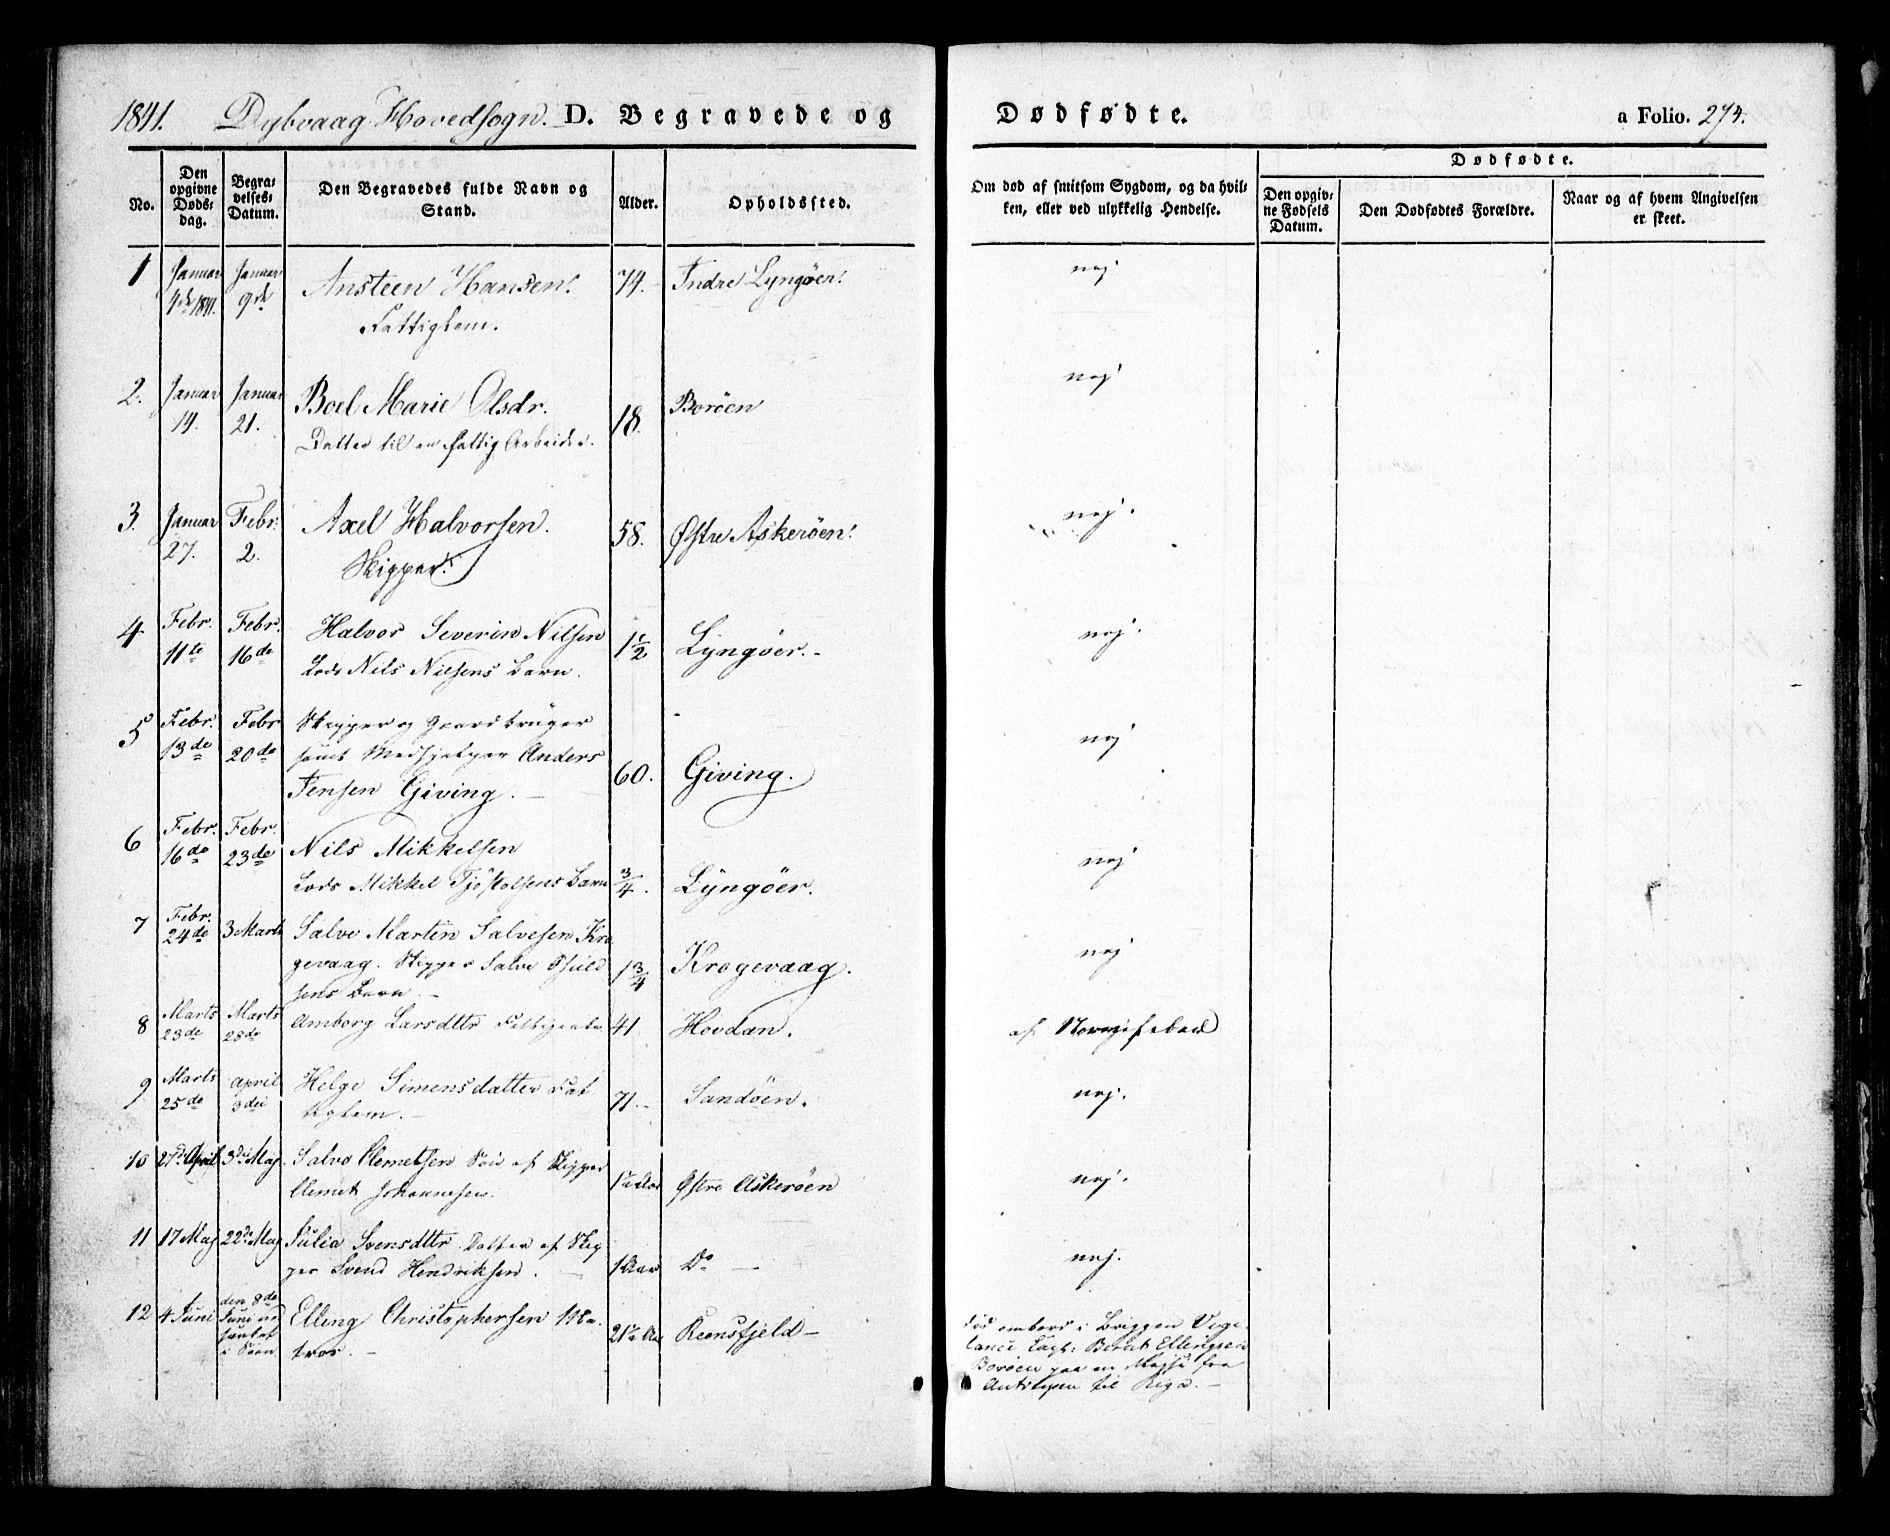 1841. Dybvaag Hovedsogn. D. Begravede og Dødfødte. a Folio. 274.
No.
Den opgivne Døds-dag.
Begra-velses-Datum.
Den Begravedes fulde Navn og Stand.
Alder.
Opholdssted.
Om død af smitsom Sygdom, og da hvil-ken, eller ved ulykkelig Hendelse.
Dødfødte.
Den opgiv-ne Fødsels Datum.
Den Dødfødtes Forældre.
Naar og af hvem Angivelsen er skeet.
1 Januar Januar Ansteen Hansen. 74. Indre Lyngöer. nej
4de 1841. 9de Fattiglem.
2. Januar Januar Boel Marie Olsdr. 18. Boröen nej
19. 21. Datter til en fattig Arbeider.
3. Januar Febr. Axel Halvorsen. 58. Østre Askeröen. nej.
27. 2. Skipper.
4 Febr. Febr. Halvor Severin Nilsen 1½ Lyngöer. nej.
11te 16de Lods Nils Nilsens Barn.
5 Febr. Febr Skipper og Gaardbruger nej
13de 20de samt Medhjelper Anders 60. Giving.
Jensen Giving.
6 Febr. Febr. Nils Mikkelsen nej
16de 23de Lods Mikkel Tjöstolsens Barn ¾. Lyngöer.
7 Febr. 24de 3 Marts Salve Martin Salvesen Kro nej
gevaag. Skipper Salve 1¾ Krogevaag.
sens Barn.
8 Marts Marts Amborg Larsdttr 41 Hovdan. af
23de 28de
9 Marts april Helge Simensdatter Fat 71. Sandöen. nej.
25de 3die tiglem.
10 27de April 3die Maj. Salve Clemetsen Sön af Skipper Østre Askeröen nej.
Clemet Johannesen.
11 17 Maj 22de Maj Julia Svensdttr Datter af Skip 1 Aar Do nej.
per Svend Hendriksen.
12 4 Juni den 8de Elling Christophersen Ma
Juni ned
sænket
i Söen
tros.
död ombord i Briggen Vigi
lance Capt: Berent Ellingsen
Boröen paa en Rejse fra
til Riga.